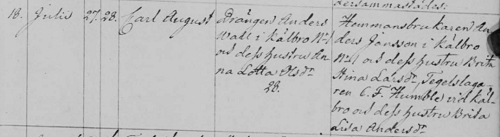 dersammastädes:
18. Julii 27. 28. Carl August
Drängen Anders
Wall i Kälbro No 1
och dess hustru An
na Lotta Olsdr
28.
Hemmansbrukaren An
ders Jansson i Kälbro
No 1 och dess hustru Brita
Stina Larsdr, Tegelslaga
ren C. F. Humble vid Käl
bro och dess hustru Brita
Lisa Andersdr